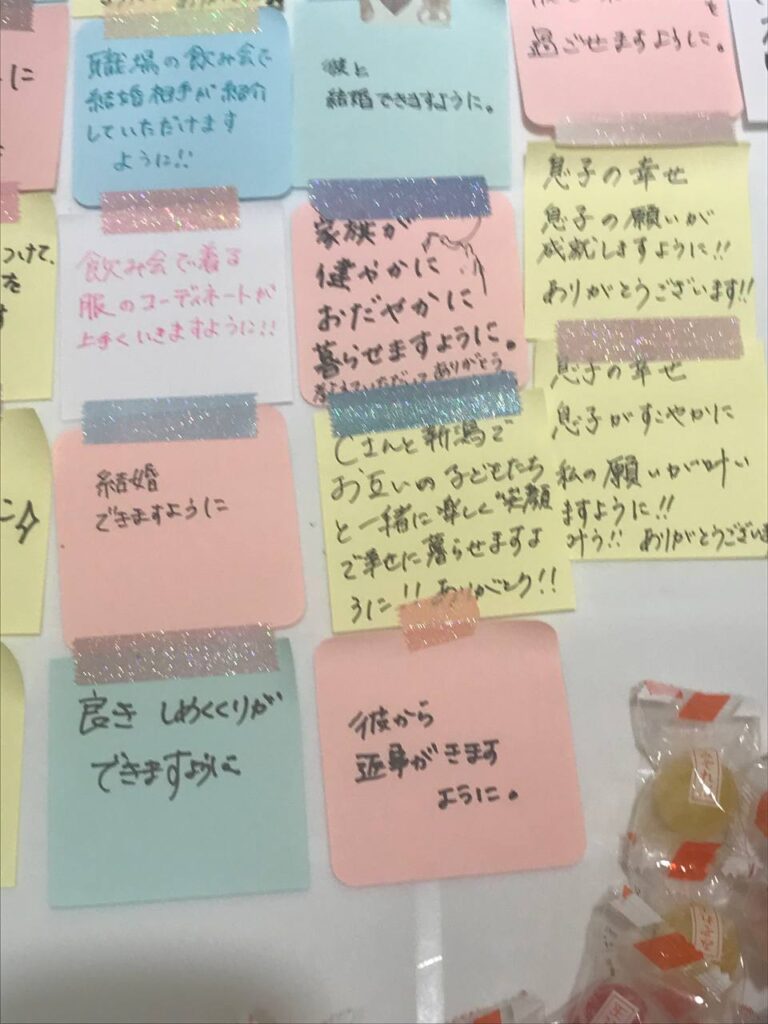 職場の飲み会で
結婚相手が紹介
していただけます
ように!!
彼と
結婚できますように。
過ごせますように。
飲み会で着る
服のコーディネートが
上手くいきますように!!
家族が
健やかに
おだやかに
暮らせますように。
ありがとう
息子の幸せ
息子の願いが
成就しますように!!
ありがとうございます!!
結婚
できますように
さんと新潟で
お互いの子どもたち
と一緒に楽しく笑顔
で幸せに暮らせますよ
うに!! ありがとう!!
息子の幸せ
息子がすこやかに
私の願いが叶い
ますように!!
叶う!! ありがとうござい
良き しめくくりが
できますように
彼から
返事がきます
ように。